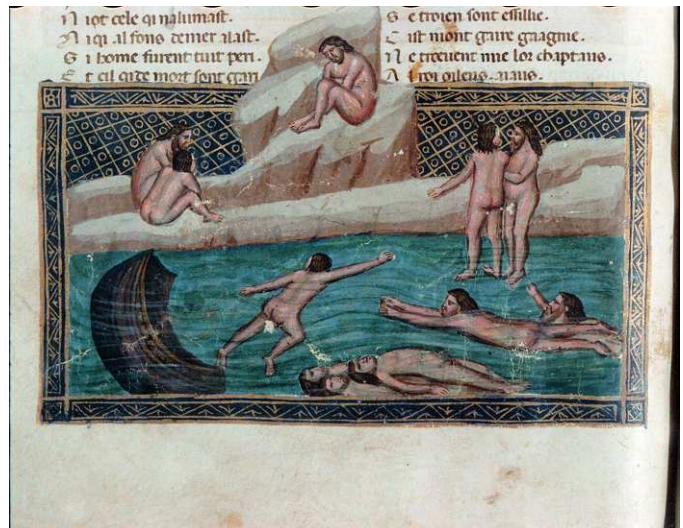 N iot cele qi nalumast.
N i qi al fons demer alast.
S i home furent tuit peri.
E t cil qi de mort sont gari
S e troien sont essillie.
C ist niont gaire gaagnie.
N e treevent mie lor chaptans.
A l roi oileus